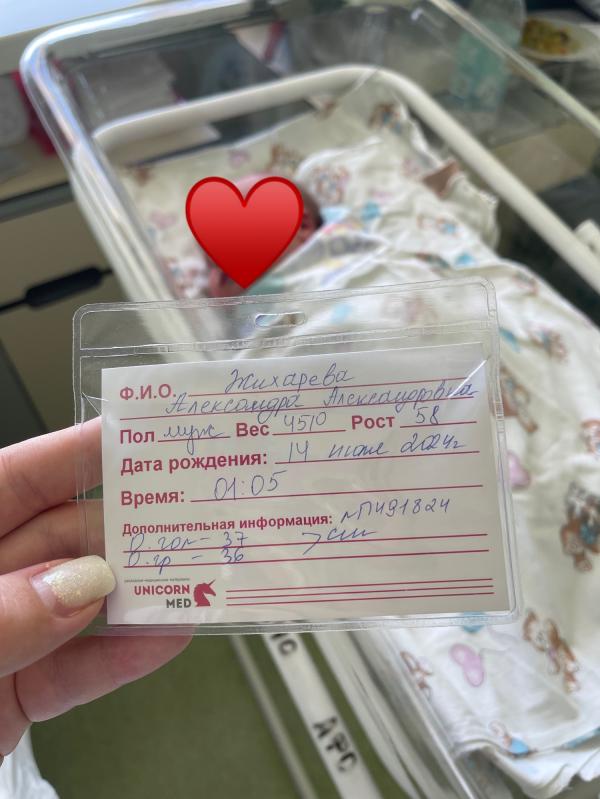 Ф.И.О. Жихарева
Александра Александровна
Пол муж Вес 4510 Рост 58
Дата рождения: 14 июля 2024г
Время: 01:05
Дополнительная информация: №П491824
О.гол - 37
О.гр - 36 > см
UNICORN
MED
АРО